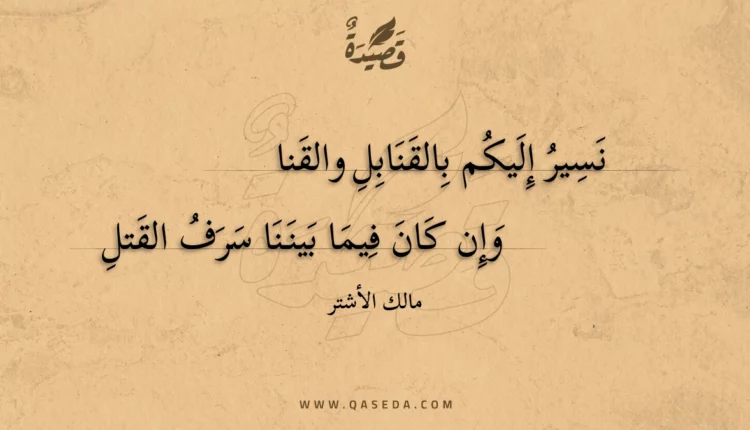 قَصِيدَةٌ
نَسِيرُ إِلَيكُم بِالقَنَابِلِ والقَنا
وَإِن كَانَ فِيمَا بَينَنَا سَرَفُ القَتلِ
مالك الأشتر
WWW.QASEDA.COM